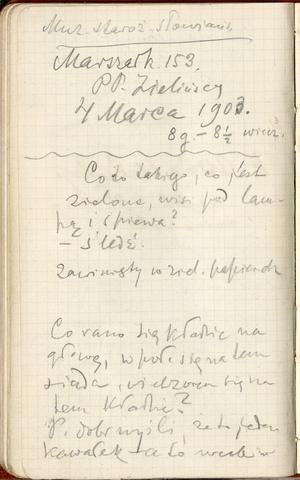 Muz. staroż. słowiańs.
Marszałk. 153.
PP. Zielińscy
4 Marca 1903.
8 g – 8½ wiecz.
Co to takiego, co jest
zielone, wisi pod lam-
pą i śpiewa?
– Śledź.
Zawinięty w ziel. papierek
Co rano się kładzie na
głowę, w poł. się na tem
siada, wieczorem się na
tem kładzie?
P. dobr. myśli, że to jeden
kawałek – a to